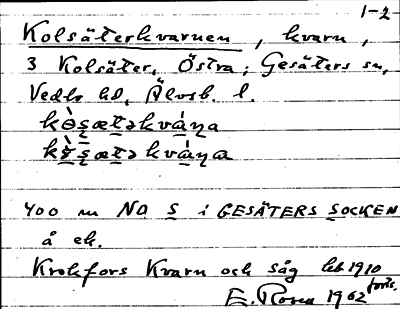 1-2
Kolsäterkvarnen, kvarn,
3 Kolsäter, Östra, Gesäters sn,
Vedbo hd, Älvsb. l.
400 m NO S i GESÄTERS SOCKEN
å ek.
Krokfors Kvarn och såg leb 1910
forts.
E. Rosen 1962